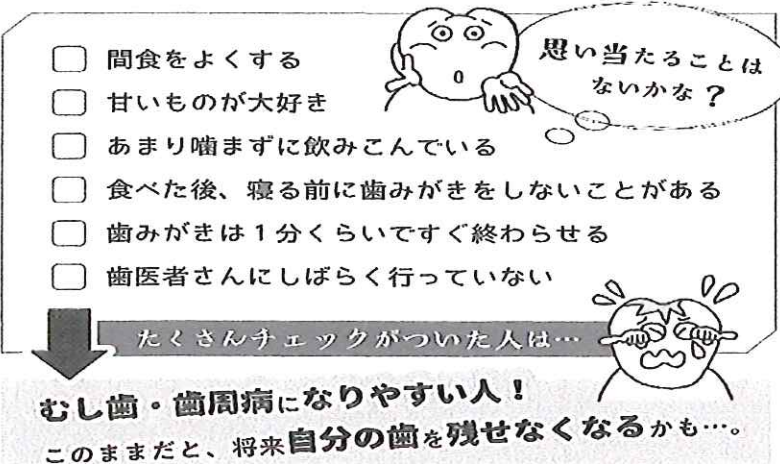 思い当たることは
ないかな？
間食をよくする
甘いものが大好き
あまり噛まずに飲みこんでいる
食べた後、寝る前に歯みがきをしないことがある
歯みがきは１分くらいですぐ終わらせる
歯医者さんにしばらく行っていない
たくさんチェックがついた人は…
むし歯・歯周病になりやすい人！
このままだと、将来自分の歯を残せなくなるかも…。